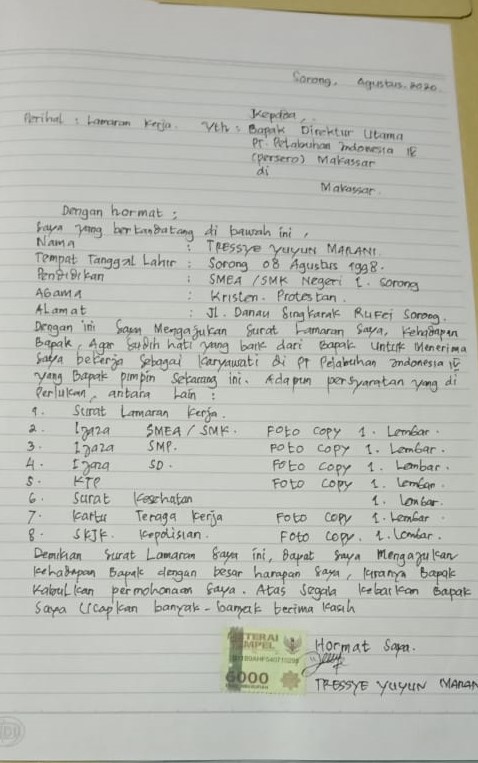 Sorong, Agustus. 2020.
Perihal : Lamaran Kerja.
Kepdaa,
Yth : Bapak Direktur Utama
PT. Pelabuhan Indonesia IV
(persero) Makassar
di
Makassar.
Dengan hormat ;
Saya yang bertandatang di bawah ini,
Nama : TRESSYE YUYUN MARANI.
Tempat Tanggal Lahir : Sorong 08 Agustus 1998.
Pendidikan : SMEA /SMK Negeri 1. Sorong
AGama : Kristen. Protestan.
ALamat : Jl. Danau Singkarak Rufei Sorong.
Dengan ini Saya Mengajukan Surat Lamaran Saya, Kehadapan
Bapak, Agar Sudih hati yang baik dari Bapak Untuk Menerima
Saya bekerja Sebagai Karyawati di PT Pelabuhan Indonesia IV
yang Bapak pimpin Sekarang ini. Adapun persyaratan yang di
Perlukan, antara Lain :
1. Surat Lamaran Kerja.
2. Ijaza SMEA / SMK. FOTO COPY 1. Lembar.
3. Ijaza SMP. FOTO COPY 1. Lembar.
4. Ijaza SD. FOTO COPY 1. Lembar.
5. KTP FOTO COPY 1. Lembar.
6. Surat Kesehatan 1. Lembar.
7. Kartu Tenaga Kerja FOTO COPY 1. Lembar.
8. SKJK. Kepolisian. FOTO COPY. 1. Lembar.
Demikian Surat Lamaran Saya ini, Dapat Saya Mengajukan
Kehadapan Bapak dengan besar harapan Saya, kiranya Bapak
Kabulkan permohonaan Saya. Atas Segala Kebaikan Bapak
Saya Ucapkan banyak-banyak terima Kasih
METERAI
TEMPEL
6000
Hormat Saya.
TRESSYE YUYUN MARANI